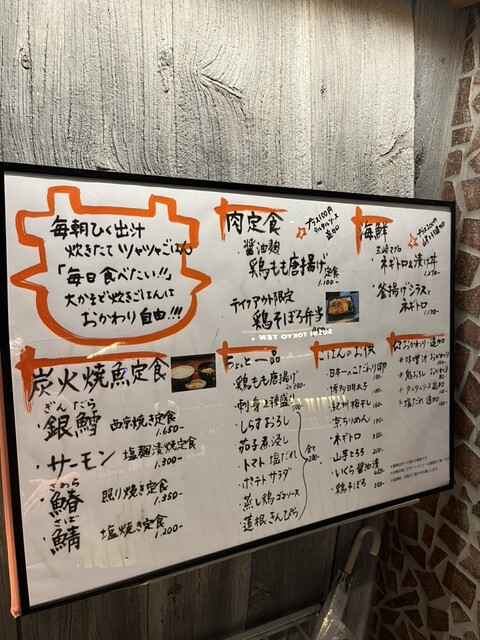 毎朝ひく出汁
炊きたてツヤツヤごはん
「毎日食べたい!!」
大かまど炊きごはんは
おかわり自由!!!
肉定食
プラス100円
タルタルソース
追加
醤油麹
鶏もも唐揚げ定食
1.100-
テイクアウト限定
鶏そぼろ弁当
海鮮
プラス200円
三崎マグロ
ネギトロ&漬け丼
1.270-
・釜揚げシラスと
ネギトロ
1.170-
SUSHI TOKYO TEN、
炭火焼魚定食
ぎんだら
・銀鱈 西京焼き定食
1.650-
・サーモン 塩麹漬焼定食
1.300-
さわら
・鰆 照り焼き定食
1.350-
さば
・鯖 塩焼き定食
1.200-
ちょっと一品
鶏もも唐揚げ
・刺身2種盛り
・しらすおろし
・茄子煮浸し
・トマト塩だれ
・ポテトサラダ
・蒸し鶏ゴマソース
・蓮根きんぴら
全て
ごはんのお供
・日本一のこだわり卵
・博多明太子
・紀州梅干し
・京ちりめん
・ネギトロ
・山芋とろろ
・いくら醤油漬
・鶏そぼろ
おかわり・追加
*味噌汁おかわり
*タルタルソース追加
*塩だれ追加